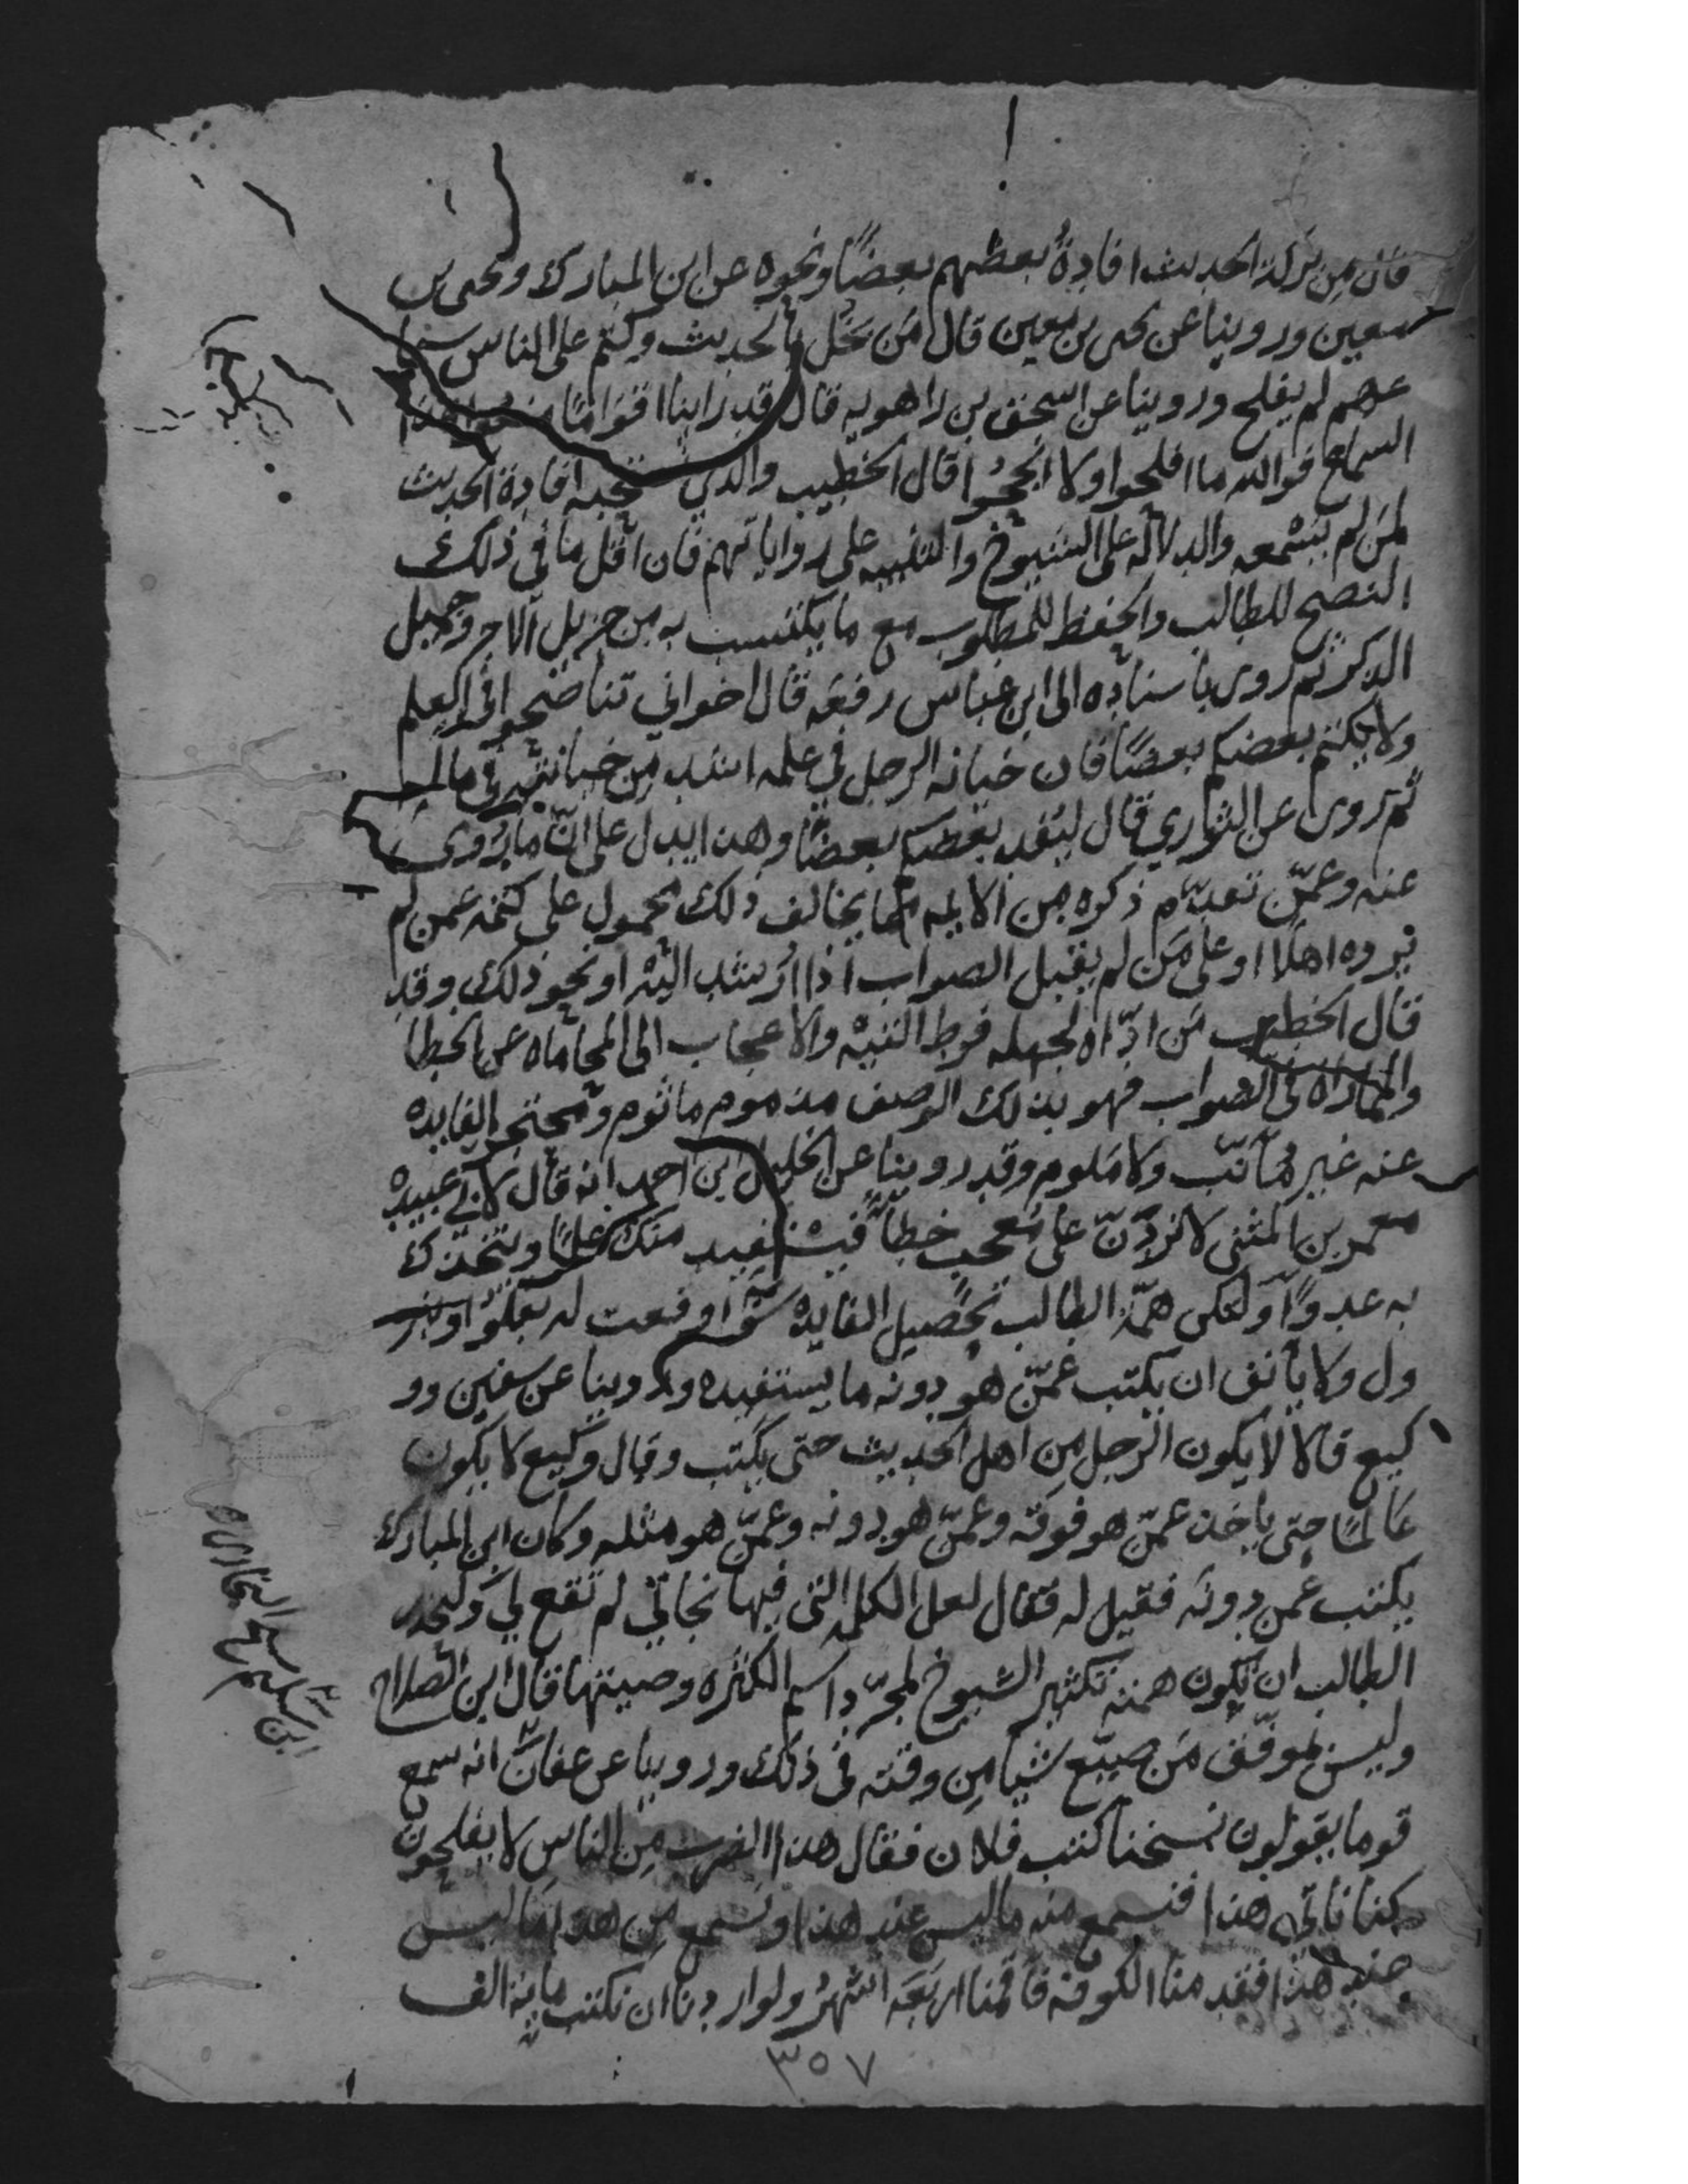 فان من بركة الحديث افادةُ بعضهم بعضًا ونحوه عن ابن المبارك ويحيى بن
معين وروينا عن يحيى بن معين قال من بخل بالحديث وكتم على الناس سما
عهم لم يفلح وروينا عن اسحق بن راهويه قال قد راينا اقوامًا منعوا هذا
السماع فوالله ما افلحوا ولا انجحُوا قال الخطيب والذي نستحبه افادة الحديث
لمن لم يسمعه والدلالة على الشيوخ والتنبيه على رواياتهم فان اقل ما في ذلك
النصح للطالب والحفظ للمطلوب مع ما يكتسب به من جزيل الاجر وجميل
الذكر ثم روى باسناده الى ابن عباس رفعه قال اخواني تناصحوا في العلم
ولا يكتم بعضكم بعضًا فان خيانة الرجل في علمه اشد من خيانته في ماله
ثم روى عن الثوري قال ليفد بعضكم بعضًا وهذا يدل على انّ ما روى
عنه وعمّن تقدّم ذكره من الايمه مما يخالف ذلك محمول على كتمه عمن لم
يروه اهلا او على من لم يقبل الصواب اذا ارشد اليه او نحو ذلك وقد
قال الخطيب من ادّاه لجهله فرط التيه والاعجاب الى المحاماه عن الخطا
والمماراه في الصواب فهو بذلك الوصف مذموم ماثوم ومحتجز الفايده
عنه غير مؤنّب ولا ملوم وقد روينا عن الخليل ابن احمد انه قال لابي عبيدة
معمر بن المثنى لا تردّنّ على مُعجب خطأً فيستفيد منك علمًا ويتخذك
به عدوًّا ولتكن همّة الطالب تحصيل الفايدة سوا وقعت له بعلو او بنز
ول ولا يأنف ان يكتب عمّن هو دونه ما يستفيده وروينا عن سفين وو
كيع قالا لا يكون الرجل من اهل الحديث حتى يكتب وقال وكيع لا يكون
عالمًا حتى ياخذ عمّن هو فوقه وعمّن هو دونه وعمّن هو مثله وكان ابن المبارك
يكتب عمن دونه فقيل له فقال لعل الكلمه التي فيها نجاتي لم تقع لي وليحذر
الطالب ان تكون همته تكثير الشيوخ لمجرّد اسم الكثره وصيتها قال ابن الصلاح
وليس بموفّق من ضيّع شيا من وقته في ذلك وروينا عن عفّان انه سمع
قوما يقولون نسخنا كتب فلان فقال هذا الضرب من الناس لا يفلحون
كنا نأتي هذا فنسمع منه ما ليس عند هذا ونسمع من هذا ما ليس
عند هذا فقدمنا الكوفه فاقمنا اربعه اشهُر ولو اردنا ان نكتب مايه الف
٣٥٧